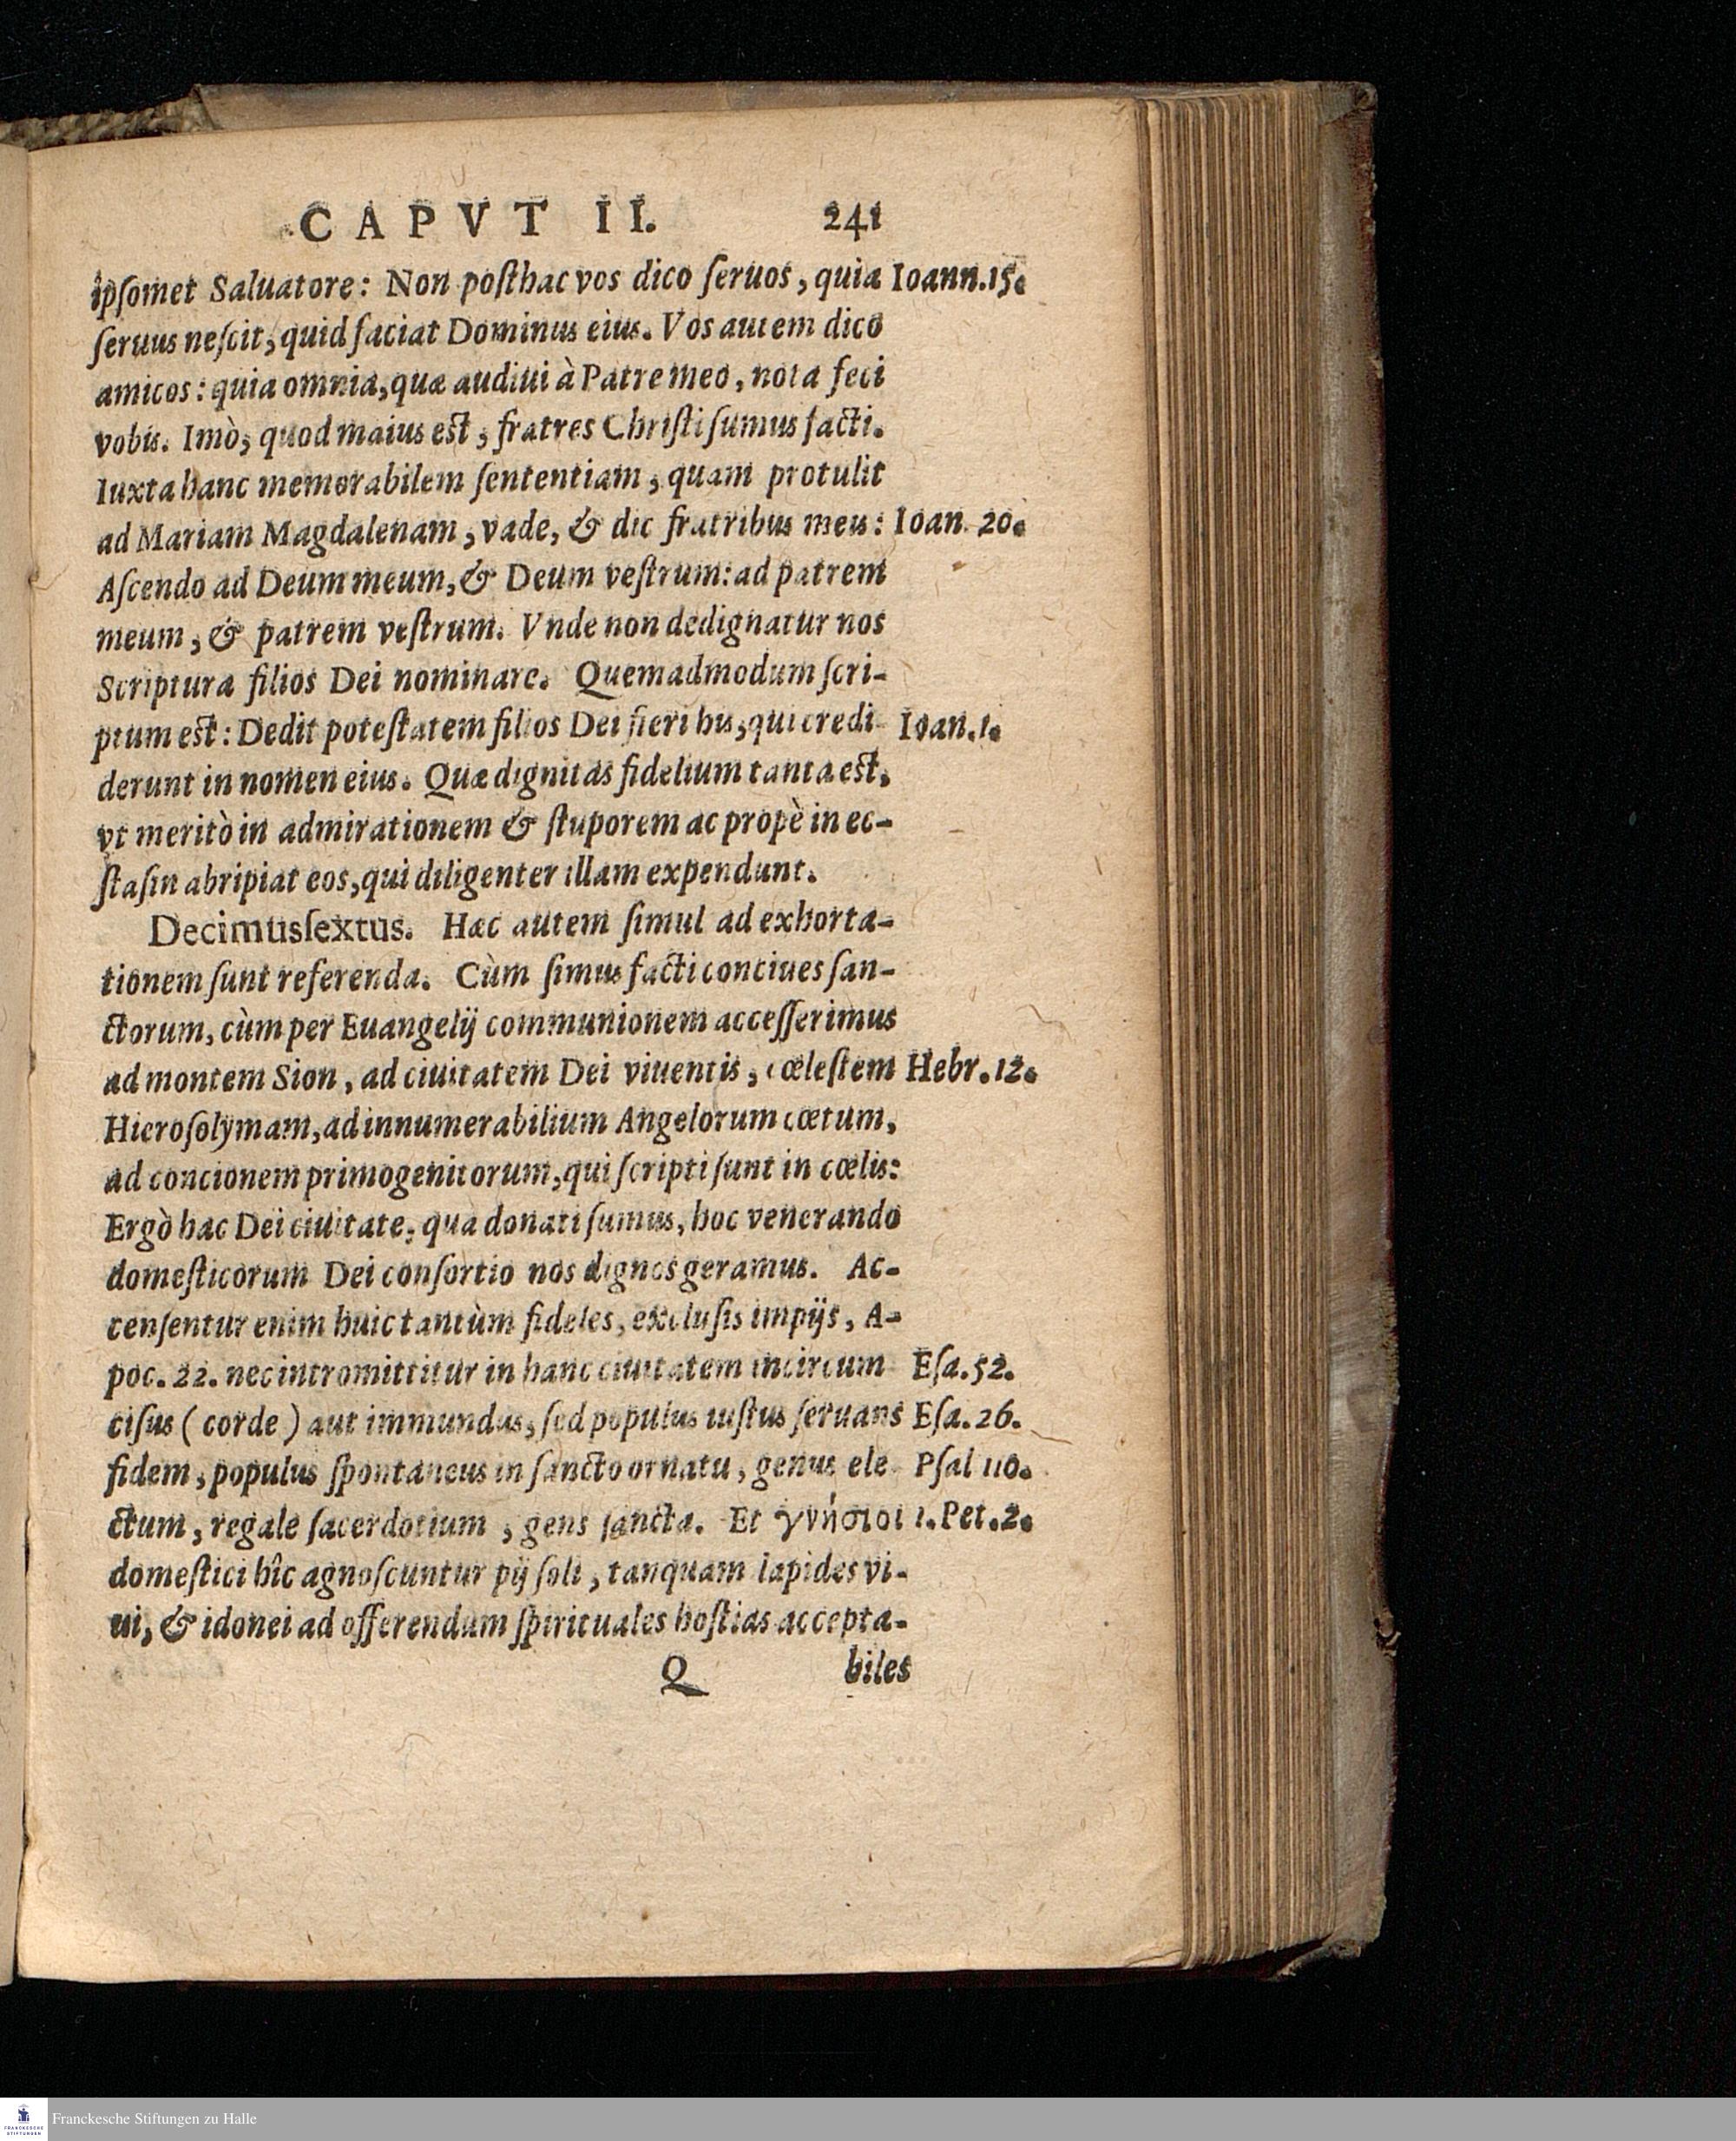 CAPVT II. 241
ipſomet Saluatore: Non posthac vos dico ſeruos, quia Ioann.15.
ſeruus neſcit, quid faciat Dominus eius. Vos autem dico
amicos: quia omnia, quæ audiui à Patre meo, nota feci
vobis. Imò, quod maius est, fratres Chriſti ſumus facti.
Iuxta hanc memorabilem ſententiam, quam protulit
ad Mariam Magdalenam, vade, & dic fratribus meis: Ioan. 20.
Aſcendo ad Deum meum, & Deum veſtrum: ad patrem
meum, & patrem veſtrum. Vnde non dedignatur nos
Scriptura filios Dei nominare. Quemadmodum ſcri-
ptum est: Dedit poteſtatem filios Dei fieri his, qui credi- Ioan.1.
derunt in nomen eius. Quæ dignitas fidelium tanta est,
vt meritò in admirationem & ſtuporem ac propè in ec-
ſtaſin abripiat eos, qui diligenter illam expendunt.
Decimusſextus. Hæc autem ſimul ad exhorta-
tionem ſunt referenda. Cùm ſimus facti conciues ſan-
ctorum, cùm per Euangelij communionem acceſſerimus
ad montem Sion, ad ciuitatem Dei viuentis, cœleſtem Hebr.12.
Hieroſolymam, ad innumerabilium Angelorum cœtum,
ad concionem primogenitorum, qui ſcripti ſunt in cœlis:
Ergò hac Dei ciuitate, qua donati ſumus, hoc venerando
domeſticorum Dei conſortio nos dignos geramus. Ac-
cenſentur enim huic tantùm fideles, excluſis impijs, A-
poc. 22. nec intromittitur in hanc ciuitatem incircum Eſa.52.
ciſus (corde) aut immundus, ſed populus iuſtus ſeruans Eſa.26.
fidem, populus ſpontaneus in ſancto ornatu, genus ele Pſal 110.
ctum, regale ſacerdotium, gens ſancta. Et γνήσιοι 1.Pet.2.
domeſtici hîc agnoſcuntur pij ſoli, tanquam lapides vi-
ui, & idonei ad offerendum ſpirituales hoſtias accepta-
Q biles
Franckesche Stiftungen zu Halle
FRANCKESCHE
STIFTUNGEN